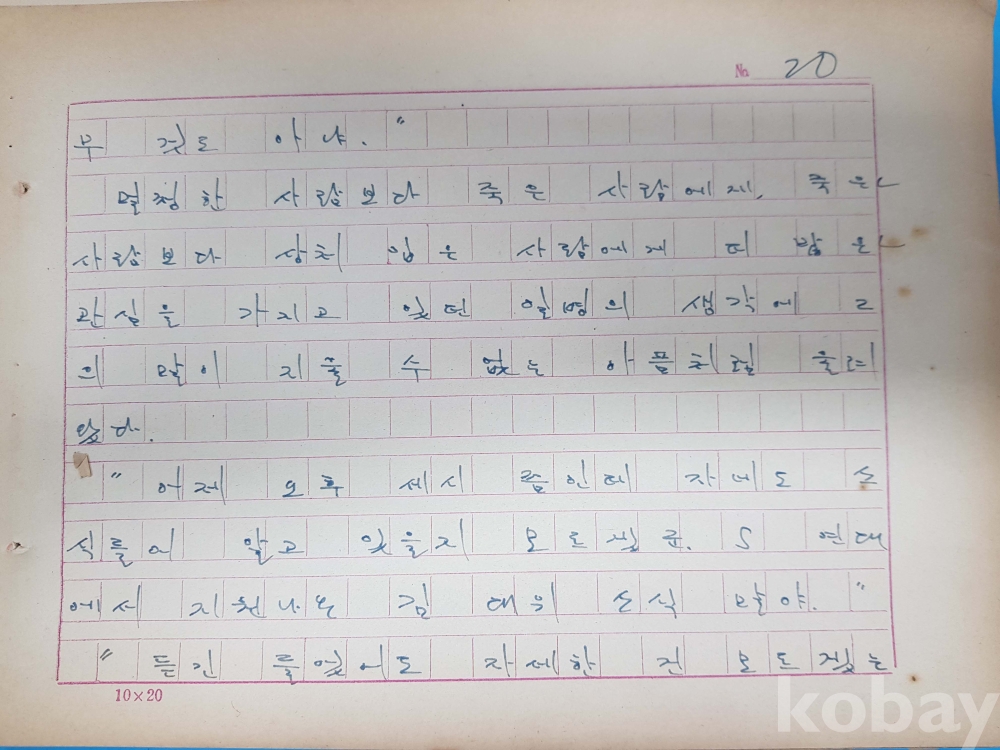 No 20
무 것도 아냐."
멀쩡한 사람보다 죽은 사람에게, 죽은
사람보다 상처 입은 사람에게 더 많은
관심을 가지고 있던 일병의 생각에 그
의 말이 지울 수 없는 아픔처럼 울려
왔다.
"어제 오후 세시 쯤인데 자네도 소
식들어 알고 있을지 모르겠군. S 연대
에서 지원나온 김 대위 소식 말야."
"듣긴 들었어도 자세한 건 모르겠는
10×20
kobay